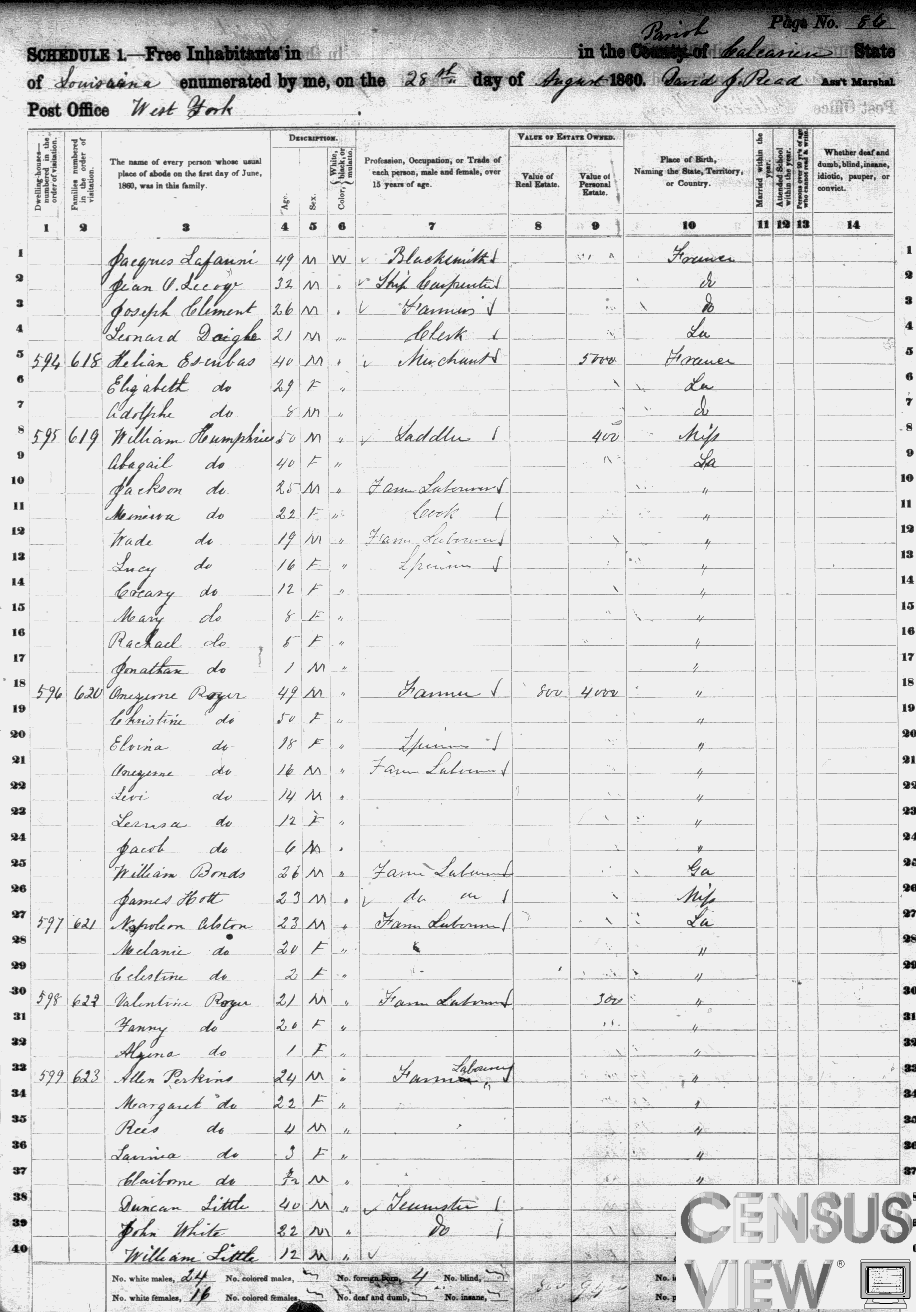 Page No. 86
SCHEDULE 1.—Free Inhabitants in in the County of Parish Calcasieu State
of Louisiana enumerated by me, on the 28th day of August 1860. David J. Read Ass't Marshal
Post Office West Fork
Dwelling-houses—numbered in the order of visitation.
Families numbered in the order of visitation.
The name of every person whose usual place of abode on the first day of June, 1860, was in this family.
DESCRIPTION.
Age.
Sex.
Color, White, black, or mulatto.
Profession, Occupation, or Trade of each person, male and female, over 15 years of age.
VALUE OF ESTATE OWNED.
Value of Real Estate.
Value of Personal Estate.
Place of Birth, Naming the State, Territory, or Country.
Married within the year.
Attended School within the year.
Persons over 20 y'rs of age who cannot read & write.
Whether deaf and dumb, blind, insane, idiotic, pauper, or convict.
1 2 3 4 5 6 7 8 9 10 11 12 13 14
1 Jacques Lafanni 49 M W Blacksmith France 1
2 Jean V. 32 M " Ship Carpenter do 2
3 Joseph Clement 26 M " Farmer do 3
4 Leonard Daigle 21 M " Clerk La 4
5 594 618 Helian Escubas 40 M " Merchant 5000 France 5
6 Elizabeth do 29 F " La 6
7 Adolphe do 8 M " do 7
8 595 619 William Humphries 50 M " Saddler 400 Miss 8
9 Abagail do 40 F " La 9
10 Jackson do 25 M " Farm Labourer " 10
11 Minerva do 22 F " Cook " 11
12 Wade do 19 M " Farm Labourer " 12
13 Lucy do 16 F " Spinner " 13
14 Creasy do 12 F " " 14
15 Mary do 8 F " " 15
16 Rachael do 5 F " " 16
17 Jonathan do 1 M " " 17
18 596 620 Onezeme Royer 49 M " Farmer 800 4000 " 18
19 Christine do 50 F " " 19
20 Elvina do 18 F " Spinner " 20
21 Onezeme do 16 M " Farm Labourer " 21
22 Levi do 14 M " " 22
23 do 12 F " " 23
24 Jacob do 6 M " " 24
25 William Bonds 26 M " Farm Labourer Ga 25
26 James Hott 23 M " do do Miss 26
27 597 621 Napoleon Alston 23 M " Farm Labourer La 27
28 Melanie do 20 F " " 28
29 Celestine do 2 F " " 29
30 598 622 Valentine Royer 21 M " Farm Labourer 300 " 30
31 Fanny do 20 F " " 31
32 Alzena do 1 F " " 32
33 599 623 Allen Perkins 24 M " Farm Labourer " 33
34 Margaret do 22 F " " 34
35 Rees do 4 M " " 35
36 Lavinia do 3 F " " 36
37 Claiborne do M " " 37
38 Duncan Little 40 M " Teamster
39 John White 22 M " Do
40 William Little 12 M "
No. white males, 24 No. colored males, No. foreign born, 4 No. blind,
No. white females, 16 No. colored females, No. deaf and dumb, No. insane,
CENSUS
VIEW®